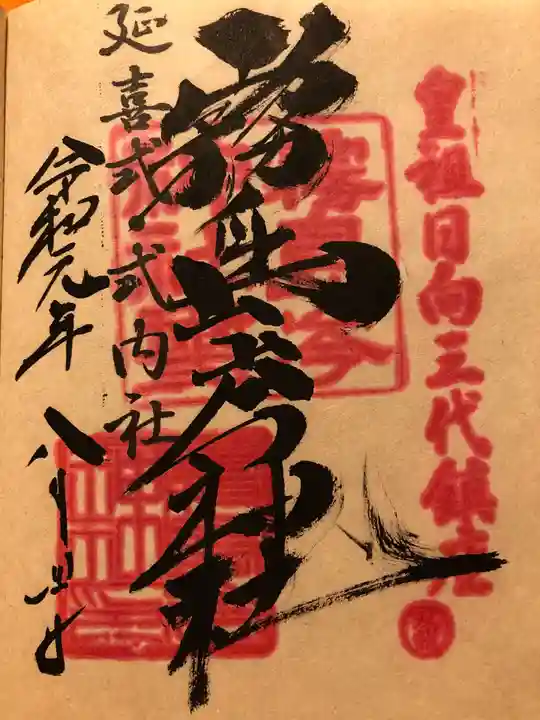 皇祖日向三代鎮座
霧島岑神社
延喜式・式内社
令和元年 八月